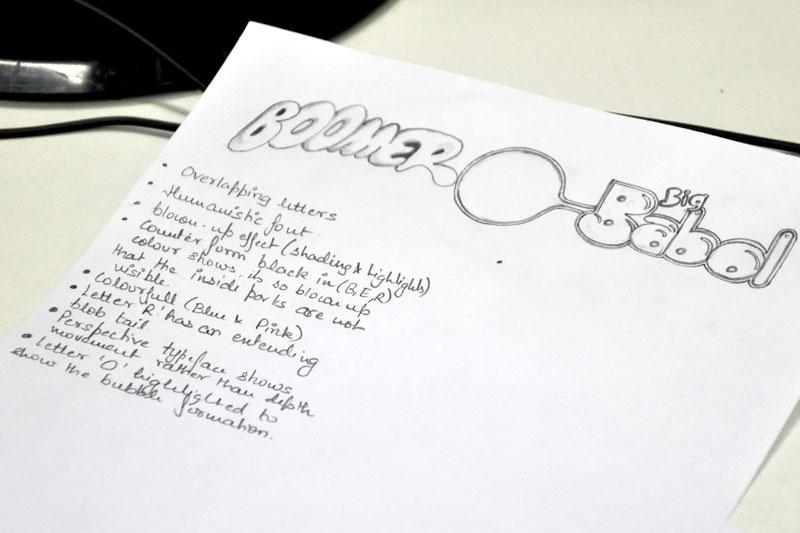 BOOMER
Big
Babol
• Overlapping letters
• Humanistic font.
• blown-up effect (shading & highlights)
• Counter form black in (B,E,R)
colour shows, its so blown up
that the inside parts are not
visible.
• Colourfull (Blue & Pink)
• Letter 'R' has an entending
blob tail.
• Perspective typefan shows
movement rather than depth
• Letter 'O' highlighted to
show the bubble formation.